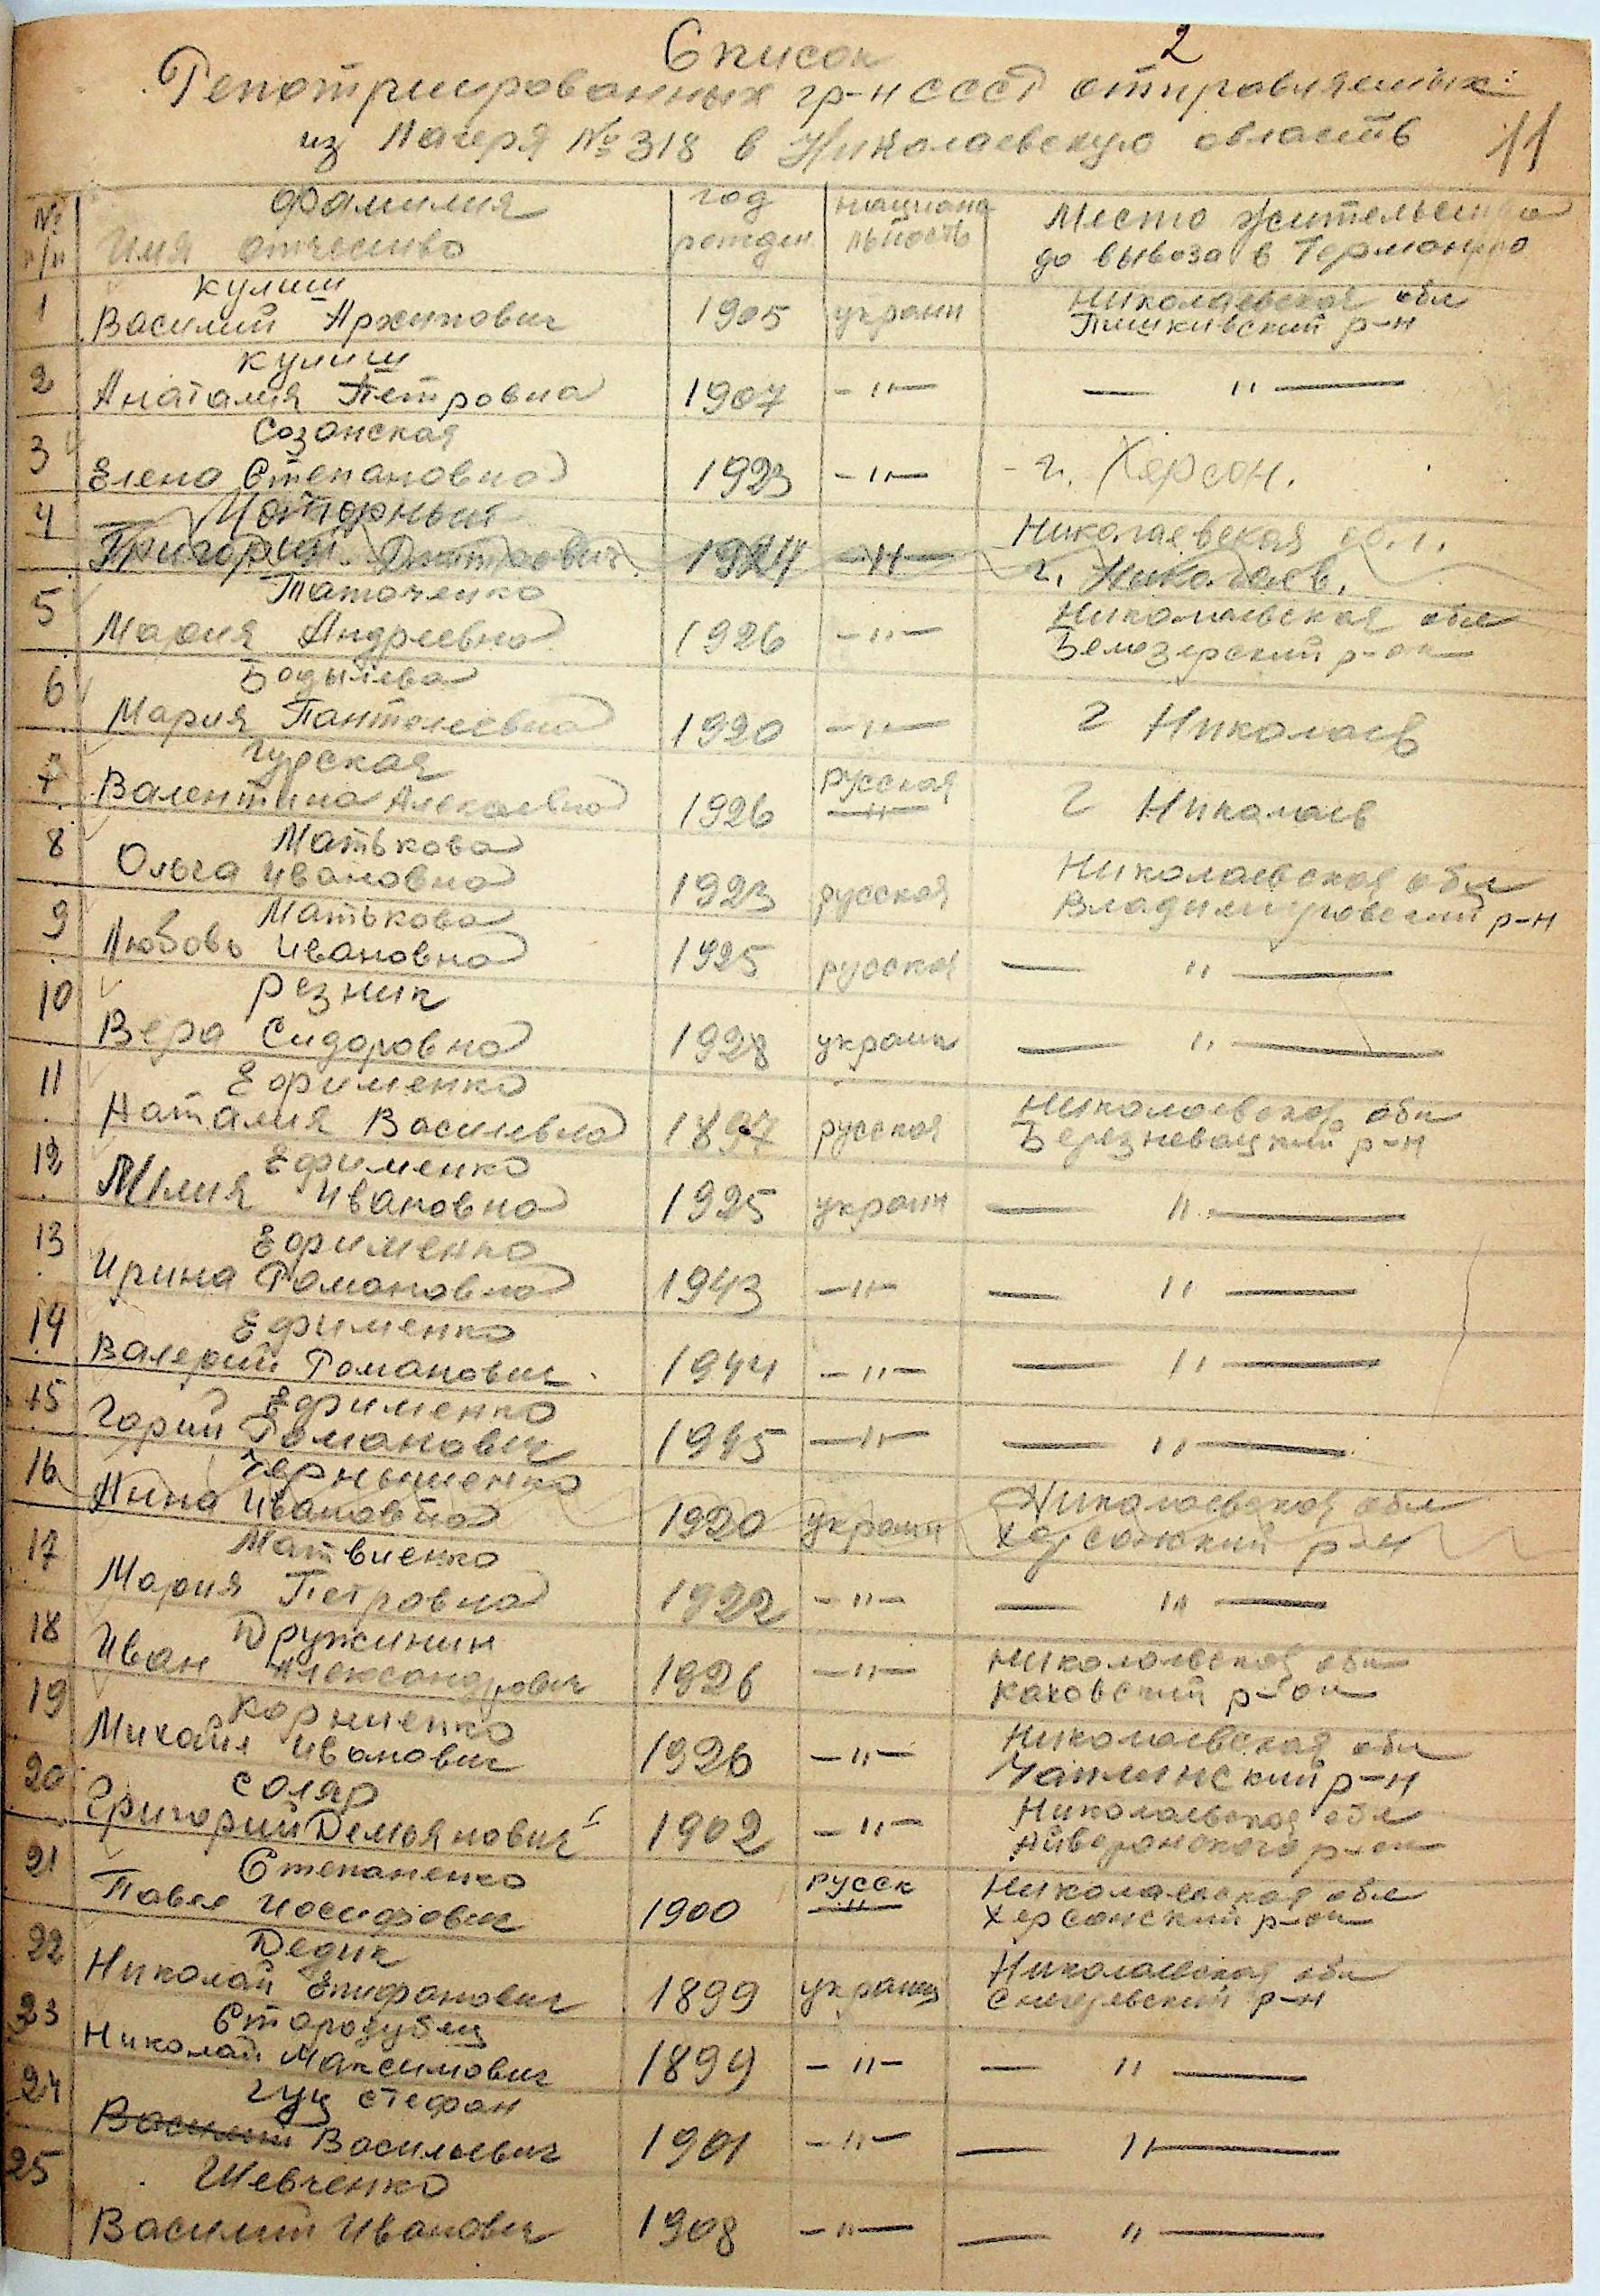 Список 2
Репотриированных гр-н СССР отправляемых
из Лагеря № 318 в Николаевскую область 11
№ п/п
Фамилия
Имя отчество
год рожден
национа
льность
Место жительства
до вывоза в Германию
Кулиш
1 Василий Архипович 1905 украин Николаевской обл
р-н
Кулиш
2 Анаталия Петровна 1907 -"- — " —
Созанская
3 Елена Степановна 1923 -"- г. Херсон.
4 Моторный Николаевская обл.
Григорий Дмитрович 1924 -"- г. Николаев.
Таточенко Николаевская обл
5 Мария Андреевна 1926 -"- Белозерский р-он
6 Бодылева
Мария Пантелеевна 1920 -"- г Николаев
Гурская русская
7 Валентина Алексеевна 1926 -"- г Николаев
8 Матькова Николаевская обл
Ольга Ивановна 1923 русская Владимировский р-н
9 Матькова
Любовь Ивановна 1925 русская — " —
10 Резник
Вера Сидоровна 1928 украин — " —
11 Ефименко Николаевская обл
Наталия Василевна 1897 русская Березневацкий р-н
12 Ефименко
Милия Ивановна 1925 украин — " —
13 Ефименко
Ирина Романовна 1943 -"- — " —
14 Ефименко
Валерий Романович 1944 -"- — " —
15 Ефименко
Гарий Романович 1945 -"- — " —
16 Чернышенко Николаевская обл
Анна Ивановна 1920 украин Херсонский р-н
17 Матвиенко
Мария Петровна 1922 -"- — " —
18 Дружинин Николаевская обл
Иван Александрович 1926 -"- Каховский р-он
19 Корниенко Николаевская обл
Михаил Иванович 1926 -"- Чаплинский р-н
20 Соляр Николаевская обл
Григорий Демьянович 1902 -"- р-он
21 Степаненко русск Николаевская обл
Павел Иосифович 1900 -"- Херсонский р-он
22 Дедик Николаевская обл
Николай Епифанович 1899 украин Снегеревский р-н
23 Стародубец
Николай Максимович 1899 -"- — " —
24 Гуц Стефан
Василий Васильевич 1901 -"- — " —
25 Шевченко
Василий Иванович 1908 -"- — " —